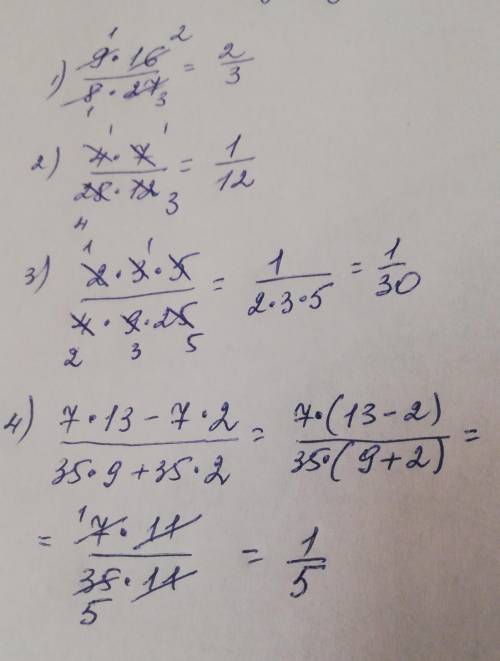 1) (9 · 16)/(8 · 27) = 2/3
1 2
1 3
2) (4 · 7)/(28 · 12) = 1/12
1 1
4 3
3) (2 · 3 · 5)/(4 · 9 · 25) = 1/(2 · 3 · 5) = 1/30
1 1
2 3 5
4) (7 · 13 − 7 · 2)/(35 · 9 + 35 · 2) = (7 · (13 − 2))/(35 · (9 + 2)) =
= (7 · 11)/(35 · 11) = 1/5
1
5